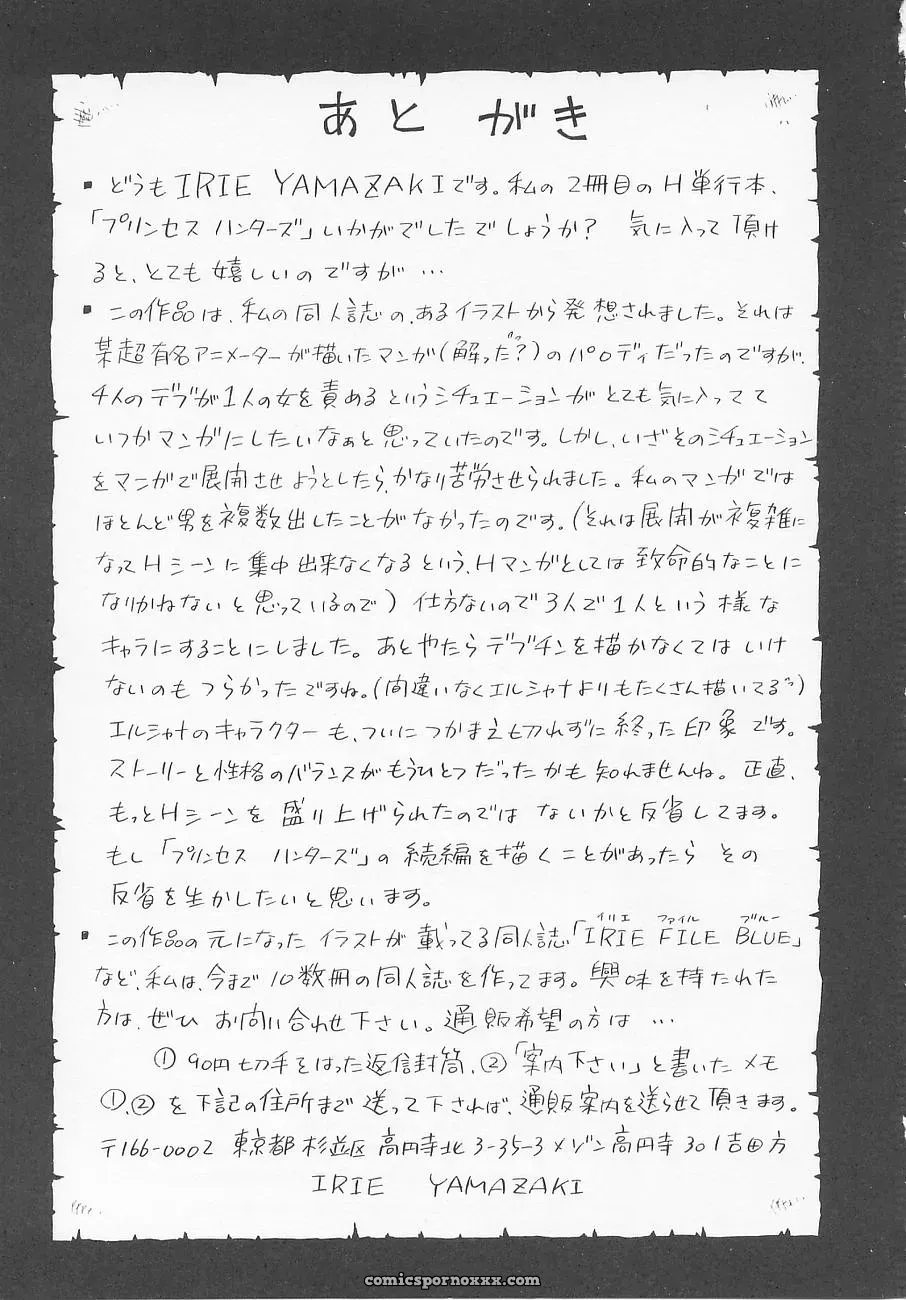 あとがき
▪ どうもIRIE YAMAZAKIです。私の2冊目のH単行本、
「プリンセス ハンターズ」いかがでしたでしょうか? 気に入って頂け
ると、とても嬉しいのですが…
▪ この作品は、私の同人誌の、あるイラストから発想されました。それは
某超有名アニメーターが描いたマンガ(解った?)のパロディだったのですが、
4人のデブが1人の女を責めるというシチュエーションがとても気に入ってて
いつかマンガにしたいなぁと思っていたのです。しかし、いざそのシチュエーション
をマンガで展開させようとしたら、かなり苦労させられました。私のマンガでは
ほとんど男を複数出したことがなかったのです。(それは展開が複雑に
なってHシーンに集中出来なくなるという、Hマンガとしては致命的なことに
なりかねないと思っているので) 仕方ないので3人で1人という様な
キャラにすることにしました。あとやたらデブチンを描かなくてはいけ
ないのもつらかったですね。(間違いなくエルシャナよりもたくさん描いてる)
エルシャナのキャラクターも、ついにつかまえ切れずに終った印象です。
ストーリーと性格のバランスがもうひとつだったかも知れませんね。正直、
もっとHシーンを盛り上げられたのではないかと反省してます。
もし「プリンセス ハンターズ」の続編を描くことがあったらその
反省を生かしたいと思います。
イリエ ファイル ブルー
▪ この作品の元になったイラストが載ってる同人誌「IRIE FILE BLUE」
など、私は、今まで10数冊の同人誌を作ってます。興味を持たれた
方は、ぜひお問い合わせ下さい。通販希望の方は…
① 90円切手をはった返信封筒、②「案内下さい」と書いたメモ
①、②を下記の住所まで送って下されば、通販案内を送らせて頂きます。
〒166-0002 東京都杉並区高円寺北3-35-3メゾン高円寺301吉田方
IRIE YAMAZAKI
comicspornoxxx.com